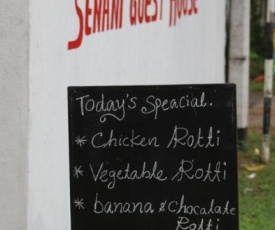 SENANI GUEST HOUSE
Today's Speacial.
* Chicken Rotti
* Vegetable Rotti
* banana & Chocalate
Rotti